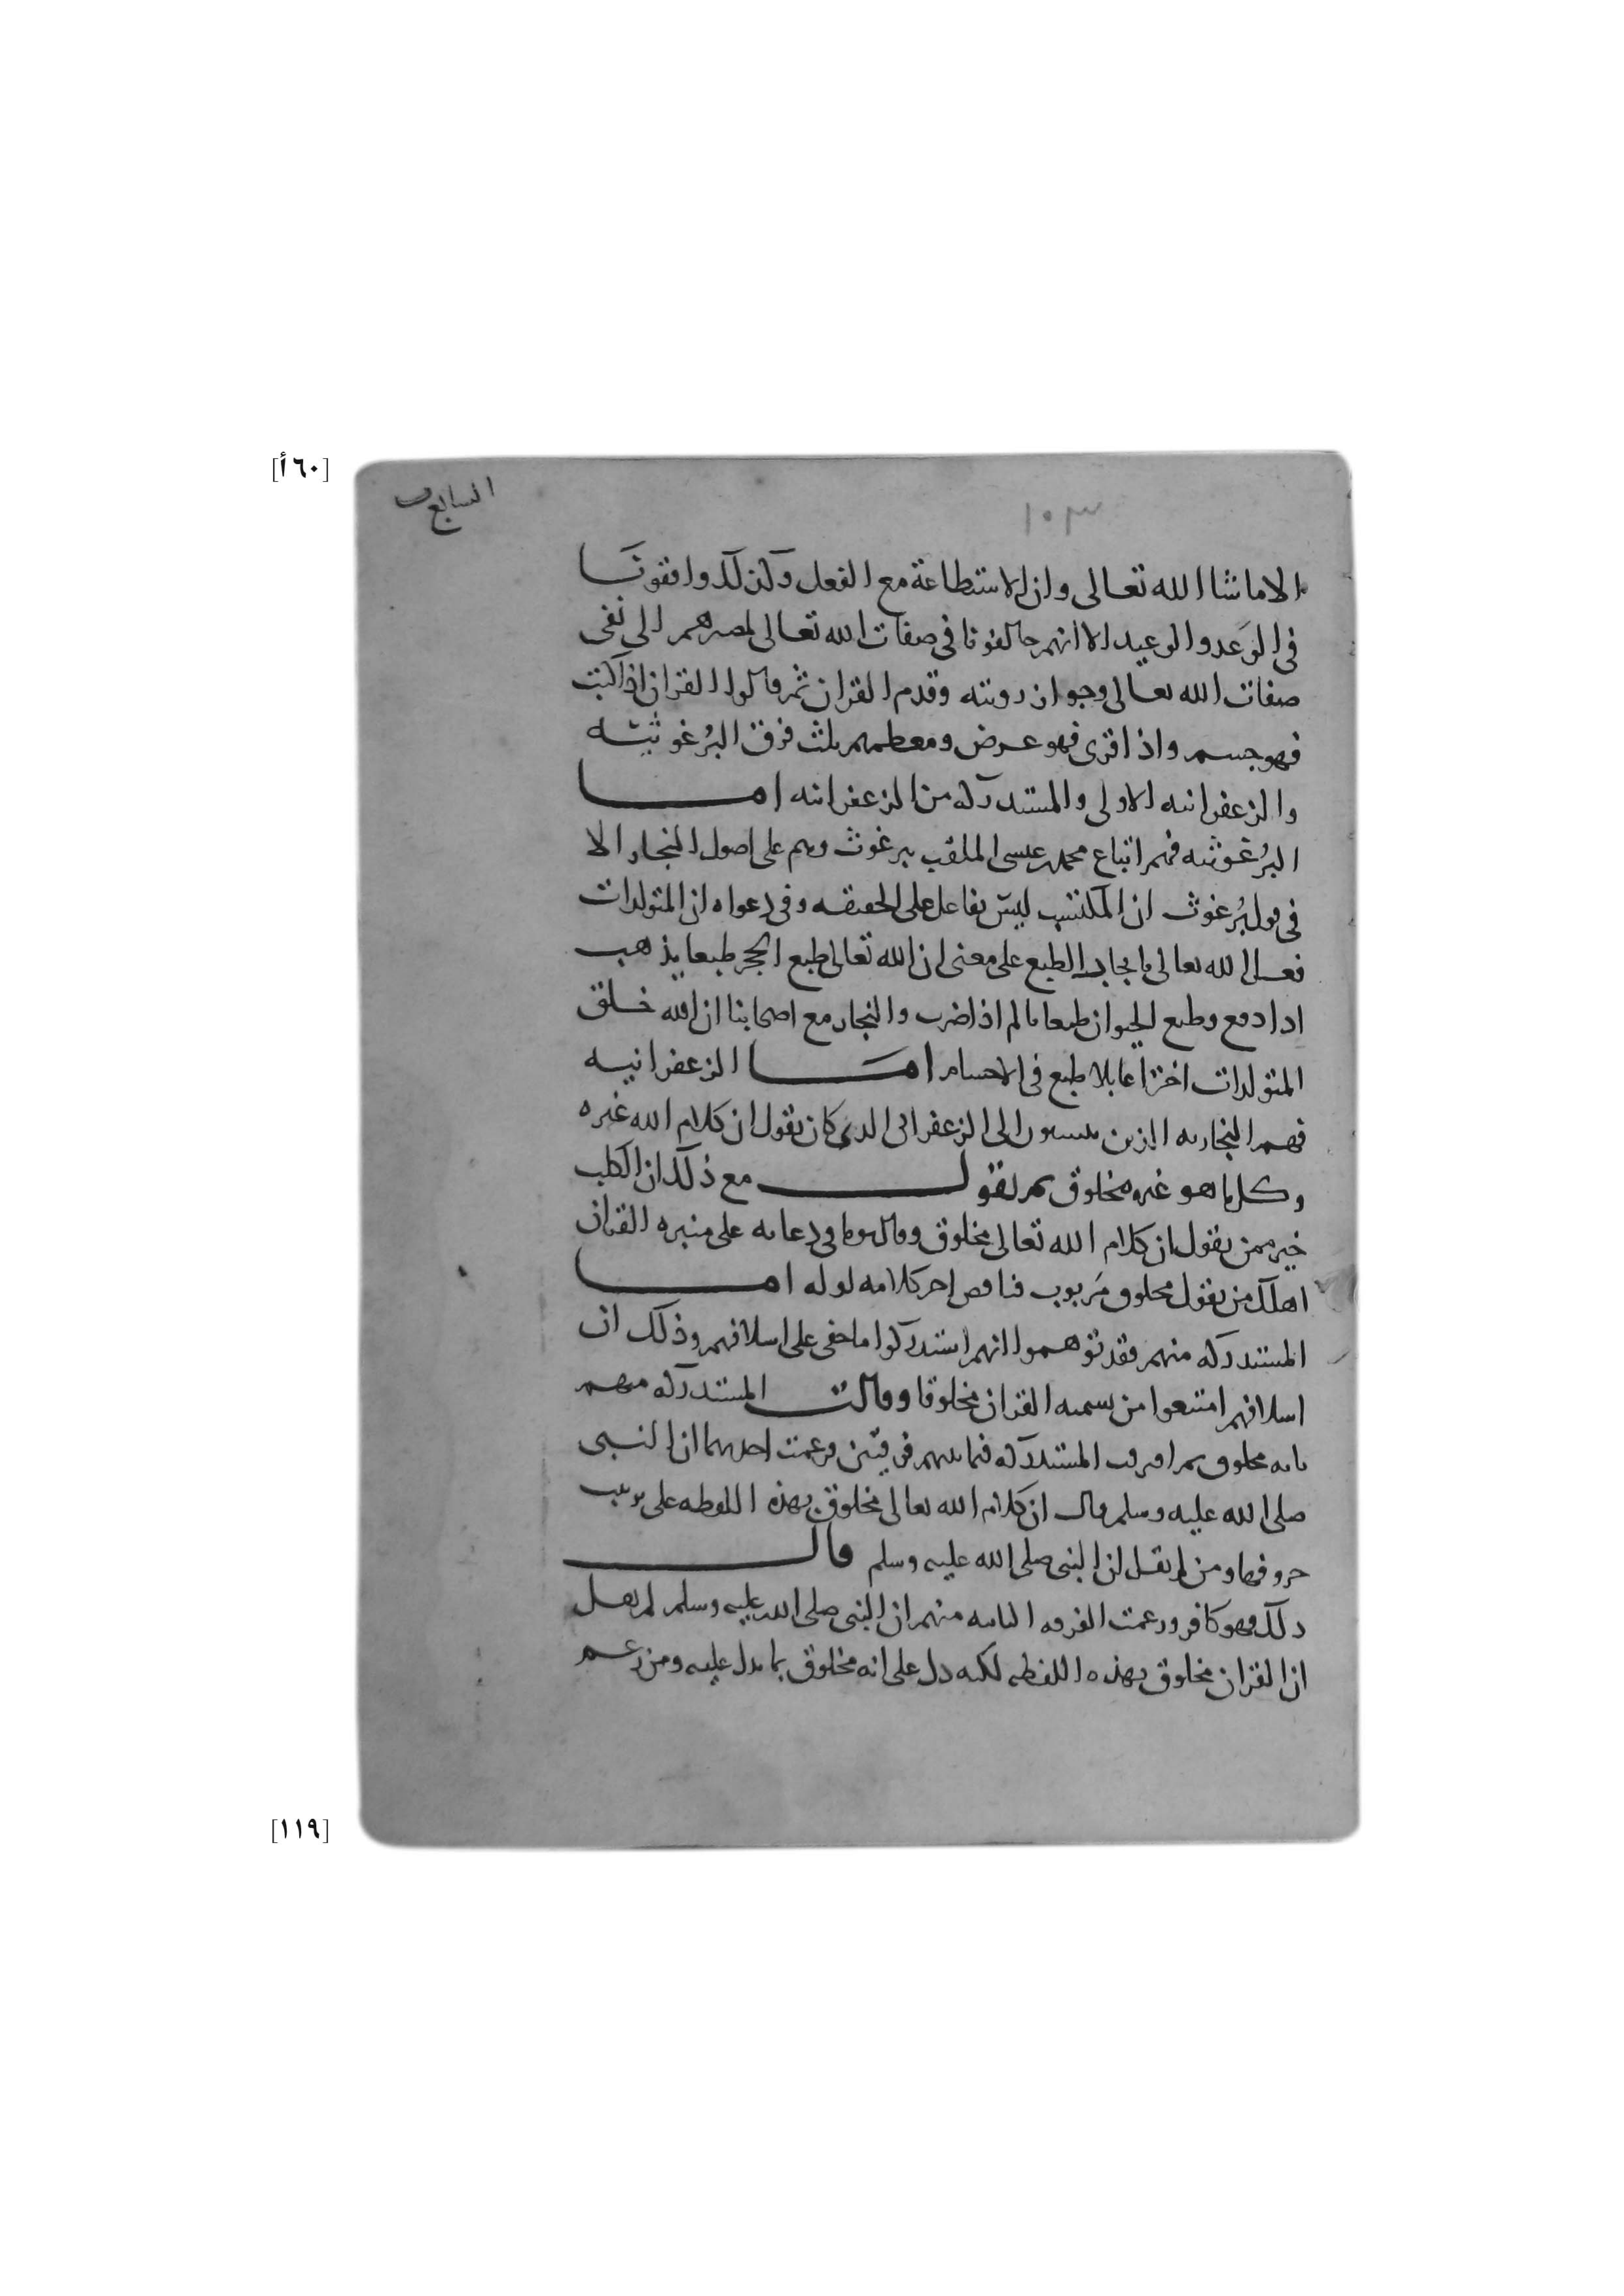 [٦٠أ]
السابع
١٠٣
الا ما شا الله تعالى وان الاستطاعة مع الفعل وكذلك وافقونا
فى الوعد والوعيد الا انهم خالفونا فى صفات الله تعالى لمصيرهم الى نفى
صفات الله تعالى وجواز رويته وقدم القران ثم قالوا القران اذا كتب
فهو جسم واذا قرى فهو عرض ومعظمهم ثلث فرق البرغوثية
والزعفرانيه الاولى والمستدركه من الزعفرانيه اما
البرغوثيه فهم اتباع محمد عيسى الملقب ببرغوث وهم على اصول النجار الا
فى قول برغوث ان المكتسب ليس بفاعل على الحقيقه وفى دعواه ان المتولدات
فعل الله تعالى بايجاب الطبع على معنى ان الله تعالى طبع الحجر طبعا يذهب
اذا دفع وطبع الحيوان طبعا يالم اذا ضرب والنجار مع اصحابنا ان الله خلق
المتولدات اختراعا بلا طبع فى الاجسام اما الزعفرانيه
فهم النجاريه الذين ينسبون الى الزعفرانى الذى كان يقول ان كلام الله غيره
وكل ما هو غيره مخلوق ثم يقول مع ذلك ان الكلب
خير ممن يقول ان كلام الله تعالى مخلوق وقال يوما فى دعايه على منبره القران
اهلك من يقول مخلوق مربوب فناقض اخر كلامه لوله اما
المستدركه منهم فقد توهموا انهم استدركوا ما خفى على اسلافهم وذلك ان
اسلافهم امتنعوا من تسميه القران مخلوقا وقالت المستدركه منهم
بانه مخلوق ثم افترقت المستدركه فيما بينهم فرقتين فزعمت احديهما ان النبى
صلى الله عليه وسلم قال ان كلام الله تعالى مخلوق بهذه اللفظه على ترتيب
حروفها ومن لم يقل ان النبى صلى الله عليه وسلم قال
ذلك فهو كافر وزعمت الفرقه الثانيه منهم ان النبى صلى الله عليه وسلم لم يقل
ان القران مخلوق بهذه اللفظه لكنه دل على انه مخلوق بما يدل عليه ومن زعم
[١١٩]